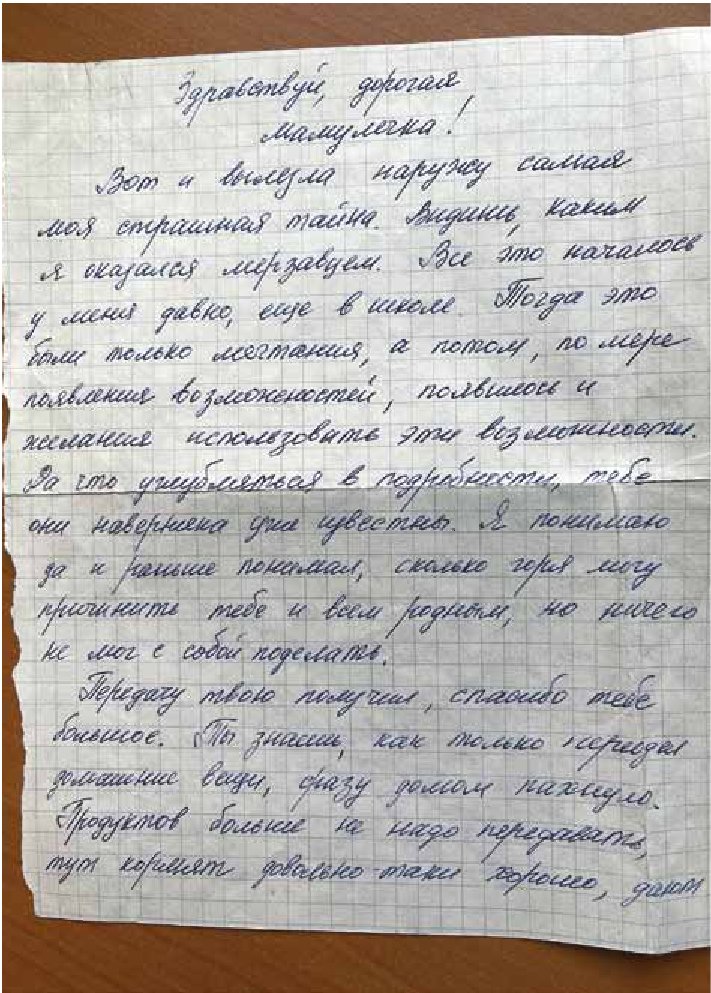 Здравствуй, дорогая
мамулечка!
Вот и вылезла наружу самая
моя страшная тайна. Видишь, каким
я оказался мерзавцем. Все это началось
у меня давно, еще в школе. Тогда это
были только мечтания, а потом, по мере
появления возможеностей, появилось и
желания использовать эти возможности.
Да что углубляться в подробности, тебе
они наверняка уже известны. Я понимаю
да и раньше понимал, сколько горя могу
причинить тебе и всем родным, но ничего
не мог с собой поделать.
Передачу твою получил, спасибо тебе
большое. Ты знаешь, как только передал
домашние вещи, сразу домом пахнуло.
Продуктов больше не надо передавать,
тут кормят довольно-таки хорошо, дают